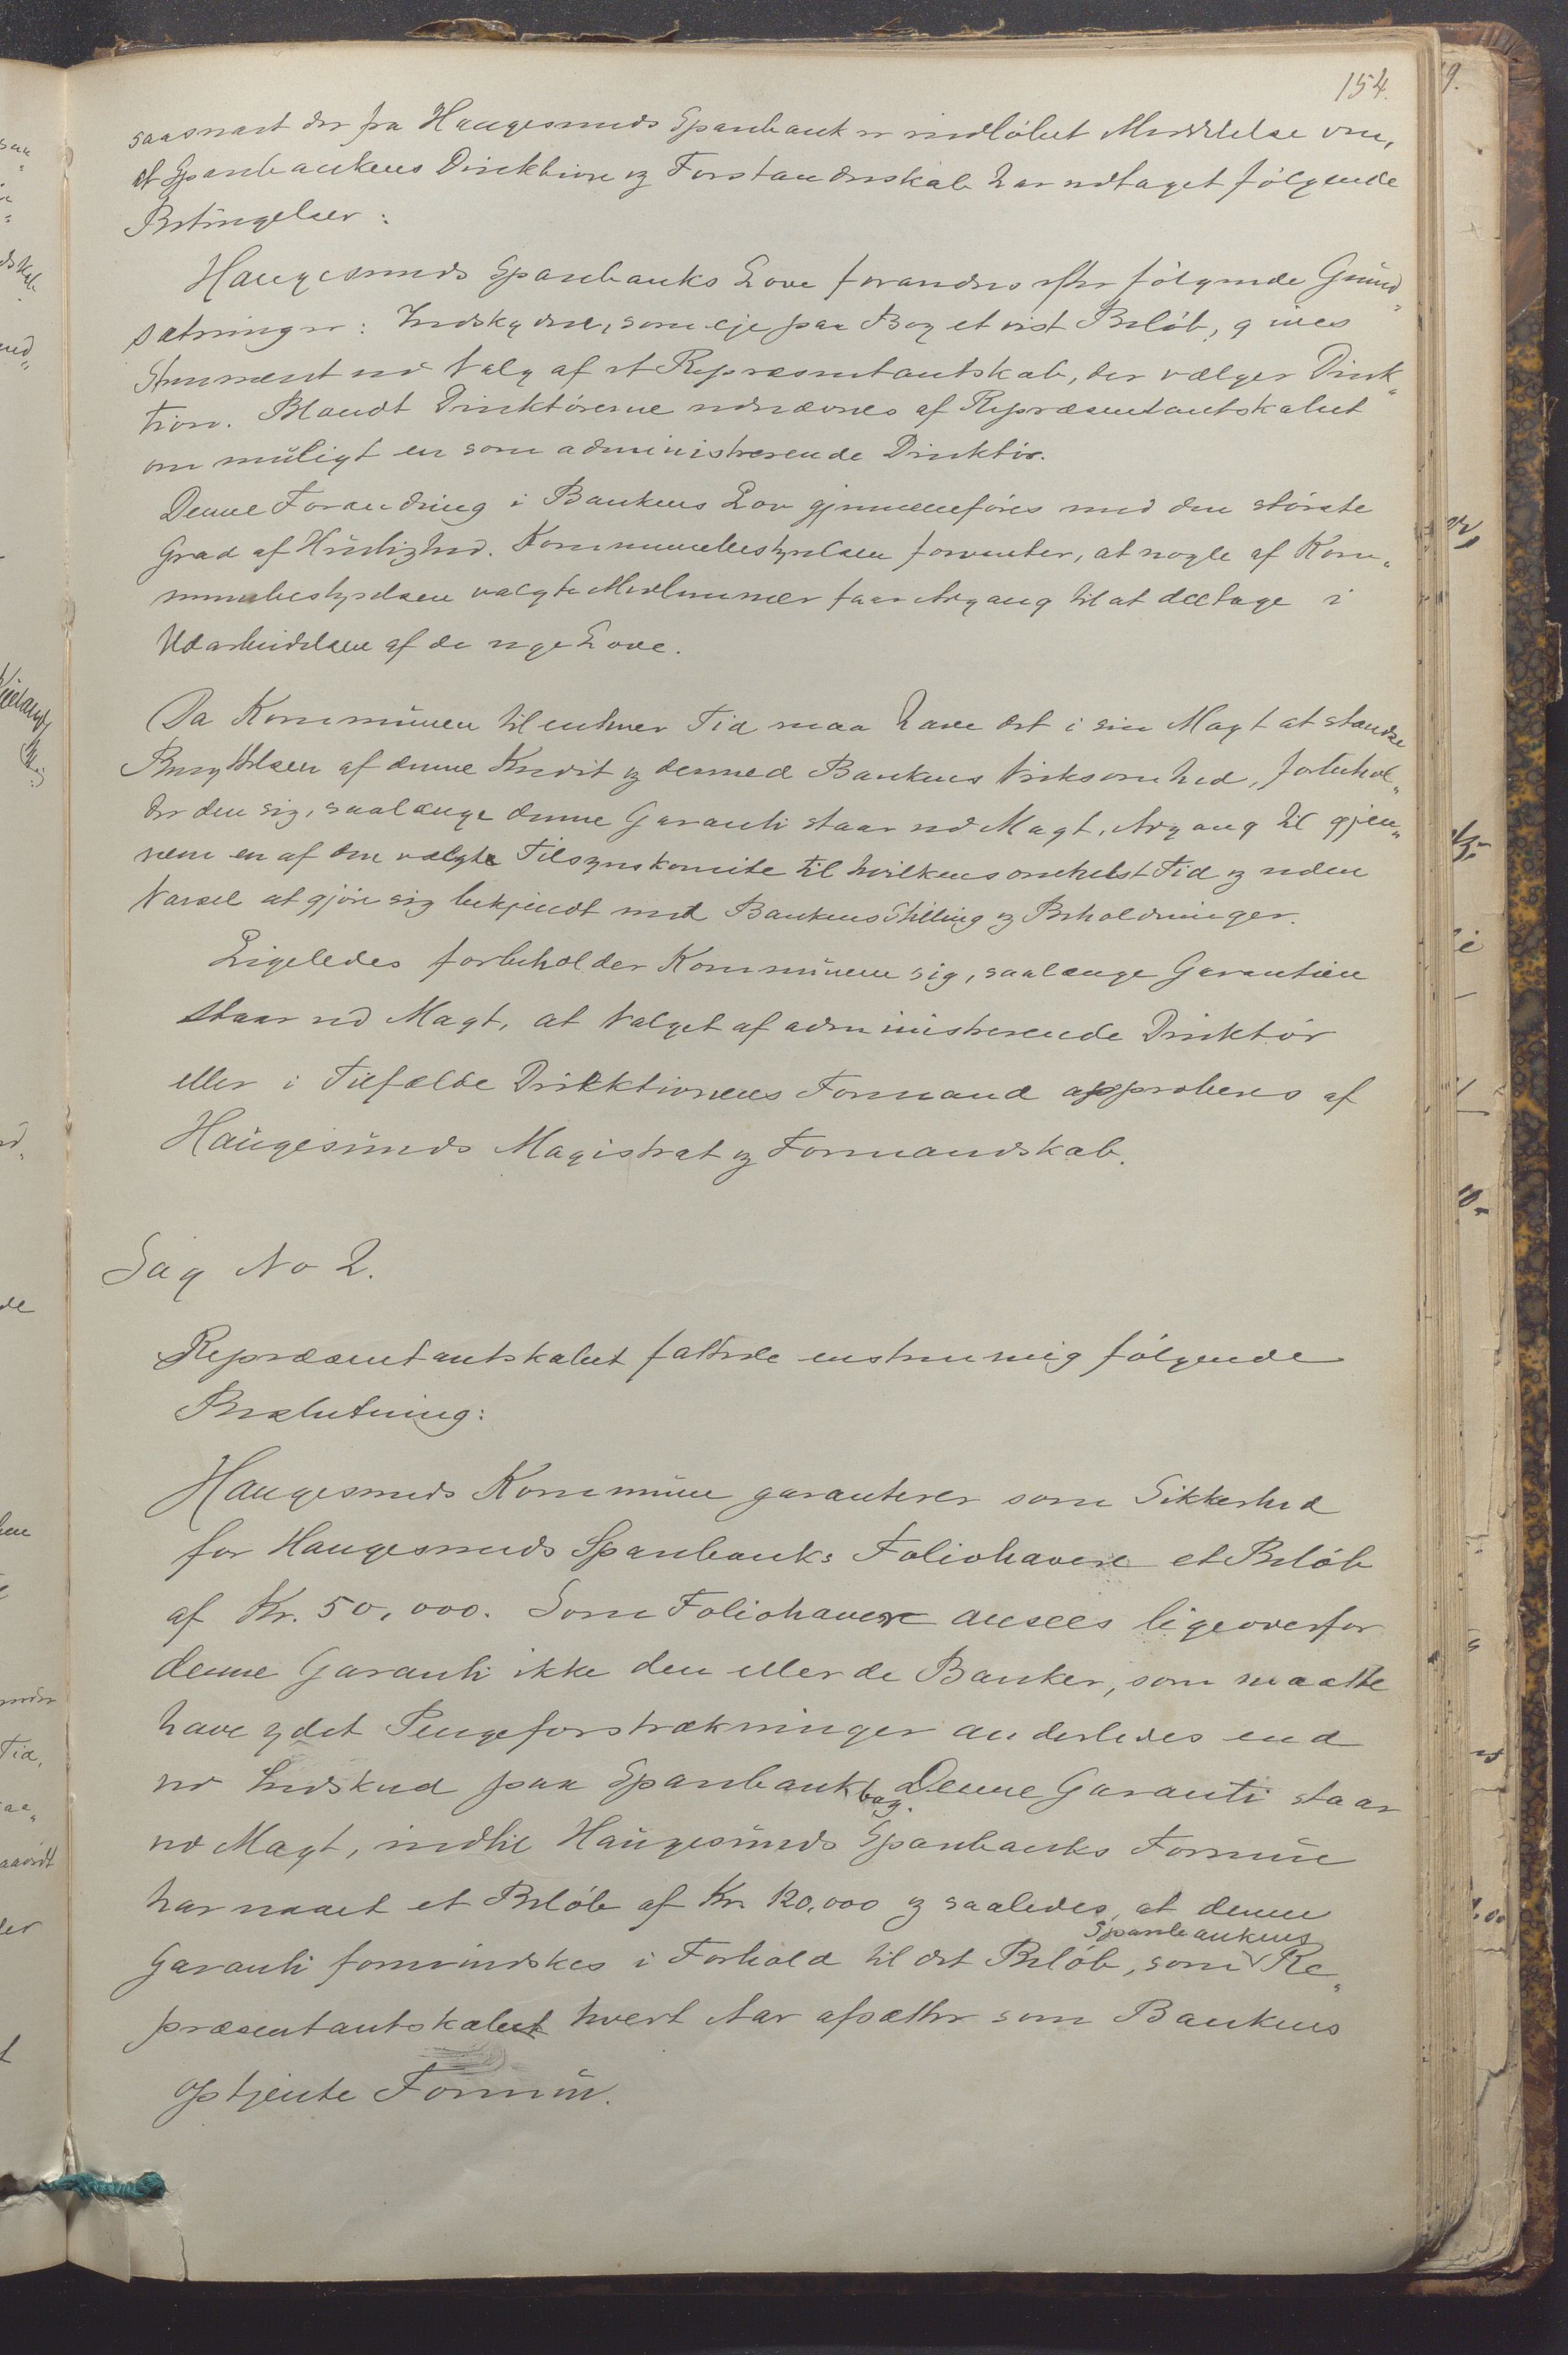 154.
saasnart der fra Haugesunds Sparebank er indløbet Meddelelse om,
at Sparebankens Direktion og Forstanderskab har vedtaget følgende
Betingelser:
Haugesunds Sparebanks Love forandres efter følgende Grund„
sætninger: Indskydere, som eje paa Bog et vist Beløb, gives
Stemmeret ved Valg af et Repræsentantskab, der vælger Direk„
tion. Blandt Direktørerne udnævnes af Repræsentantskabet
om muligt en som administrerende Direktør.
Denne Forandring i Bankens Lov gjennemføres med den største
Grad af Hurtighed. Kommunebestyrelsen forventer, at nogle af Kom„
munebestyrelsen valgte Medlemmer faar Adgang til at deeltage i
Udarbeidelsen af de nye Love.
Da Kommunen til enhver Tid maa have det i sin Magt at standse
Benyttelsen af denne Kredit og dermed Bankens Virksomhed, forbehol„
der den sig, saalænge denne Garanti staar ved Magt, Adgang til gjen„
nem en af den valgte Tilsynskomite til hvilkensomhelst Tid og uden
Varsel at gjøre sig bekjendt med Bankens Stilling og Beholdninger.
Ligeledes forbeholder Kommunen sig, saalænge Garantien
staar ved Magt, at Valget af administrerende Direktør
eller i Tilfælde Direktionens Formand approberes af
Haugesunds Magistrat og Formandskab.
Sag No 2.
Repræsentantskabet fattede enstemmig følgende
Beslutning:
Haugesunds Kommune garanterer som Sikkerhed
for Haugesunds Sparebanks Foliohavere et Beløb
af Kr. 50,000. Som Foliohavere ansees ligeoverfor
denne Garanti ikke den eller de Banker, som maatte
have ydet Pengeforstrækninger anderledes end
ved Indskud paa Sparebankbog. Denne Garanti staar
ved Magt, indtil Haugesunds Sparebanks Formue
har naaet et Beløb af Kr. 120,000 og saaledes, at denne
Garanti formindskes i Forhold til det Beløb, som Sparebankens Re„
præsentantskabet hvert Aar afsætter som Bankens
optjente Formue.